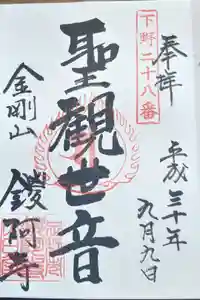 奉拝
下野二十八番
平成三十年
九月九日
聖觀世音
金剛山
鑁阿寺